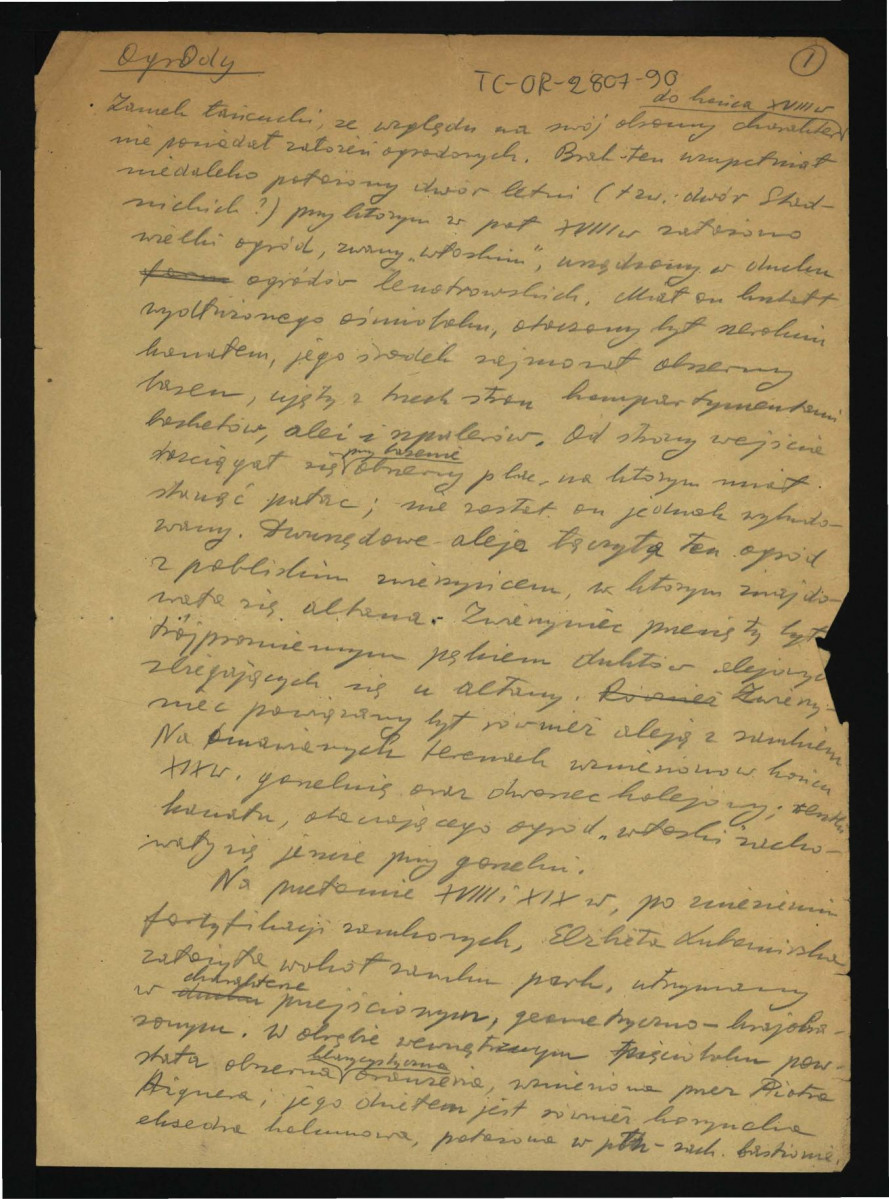 Ogrody
①
TC-OR-2807-90
do końca XVIII w
Zamek łańcucki, ze względu na swój obronny charakter
nie posiadał założeń ogrodowych. Brak ten uzupełniał
niedaleko położony dwór letni (tzw. dwór Stad-
nickich?) przy którym w poł XVIII w założono
wielki ogród, zwany "włoskim", urządzony w duchu
ogrodów lenotrowskich. Miał on kształt
wydłużonego ośmioboku, otoczony był szerokim
kanałem, jego środek zajmował obszerny
basen, ujęty z trzech stron kompartymentami
bosketów, alei i szpalerów. Od strony wejścia
rozciągał się przy basenie obszerny plac, na którym miał
stanąć pałac; nie został on jednak wybudo-
wany. Dwurzędowe aleja łączyła ten ogród
z pobliskim zwierzyńcem, w którym znajdo-
wała się altana. Zwierzyniec przecięty był
trójpromiennym pękiem duktów alejowych
zbiegających się u altany. Również Zwierzy-
niec powiązany był również aleją z zamkiem
Na omawianych terenach wzniesiono w końcu
XIX w. gorzelnię oraz dworzec kolejowy; resztki
kanału, otaczającego ogród "włoski zacho-
wały się jeszcze przy gorzelni.
Na przełomie XVIII i XIX w, po zniesieniu
fortyfikacji zamkowych, Elżbieta Lubomirska
założyła wokół zamku park, utrzymany
w duchu charakterze przejściowym, geometryczno-krajobra-
zowym. W obrębie wewnętrznym pięcioboku pow-
stała obszerna klasycystyczna oranżeria, wzniesiona przez Piotra
Aignera; jego dziełem jest również koryncka
eksedra kolumnowa, położona w płn-zach. bastionie.